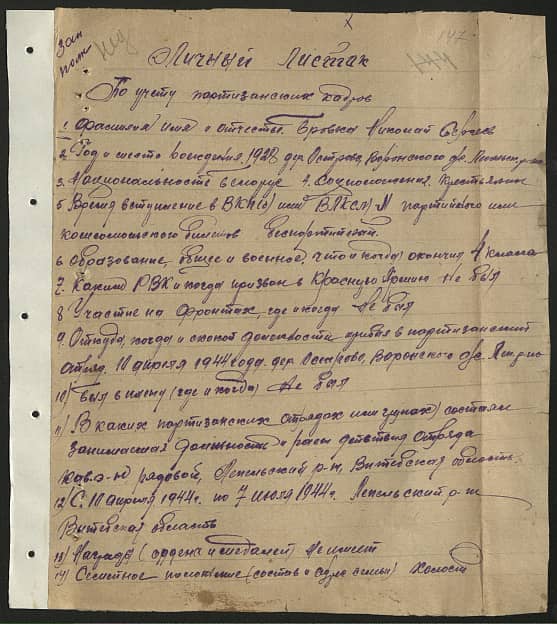 147
Личный Листок
По учету партизанских кадров
1. Фамилия имя и отчество. Бровка Николай Сергеев
2. Год и место рождения, 1928 дер. Острово, Воронского с/с.
3. Национальность белорус 4. Соцположения. Крестьянин
5. Время вступление в ВКП(б) или ВЛКСМ. № партийного или
комсомольского билетов беспартийный.
6. Образование общее и военное, что и когда окончил 4 класса
7. Каким РВК и когда призван в Красную Армию Не был
8. Участие на фронтах, где и когда Не был
9. Откуда, когда и с какой должности прибыл в партизанский
отряд. 10 апреля 1944 года. дер. Острово, Воронского с/с.
10) Был в плену (где и когда) Не был
11) В каких партизанских отрядах или групах) состоял
занимаемая должность и районы действия отряда
рядовой, Лепельский р-н, Витебская область.
12) С 10 апреля 1944г. по 7 июля 1944г. Лепельский р-н
Витебская область
13) Награды (ордена и медали) Не имеет
14) Семейное положение (состав и адрес семьи) Холост